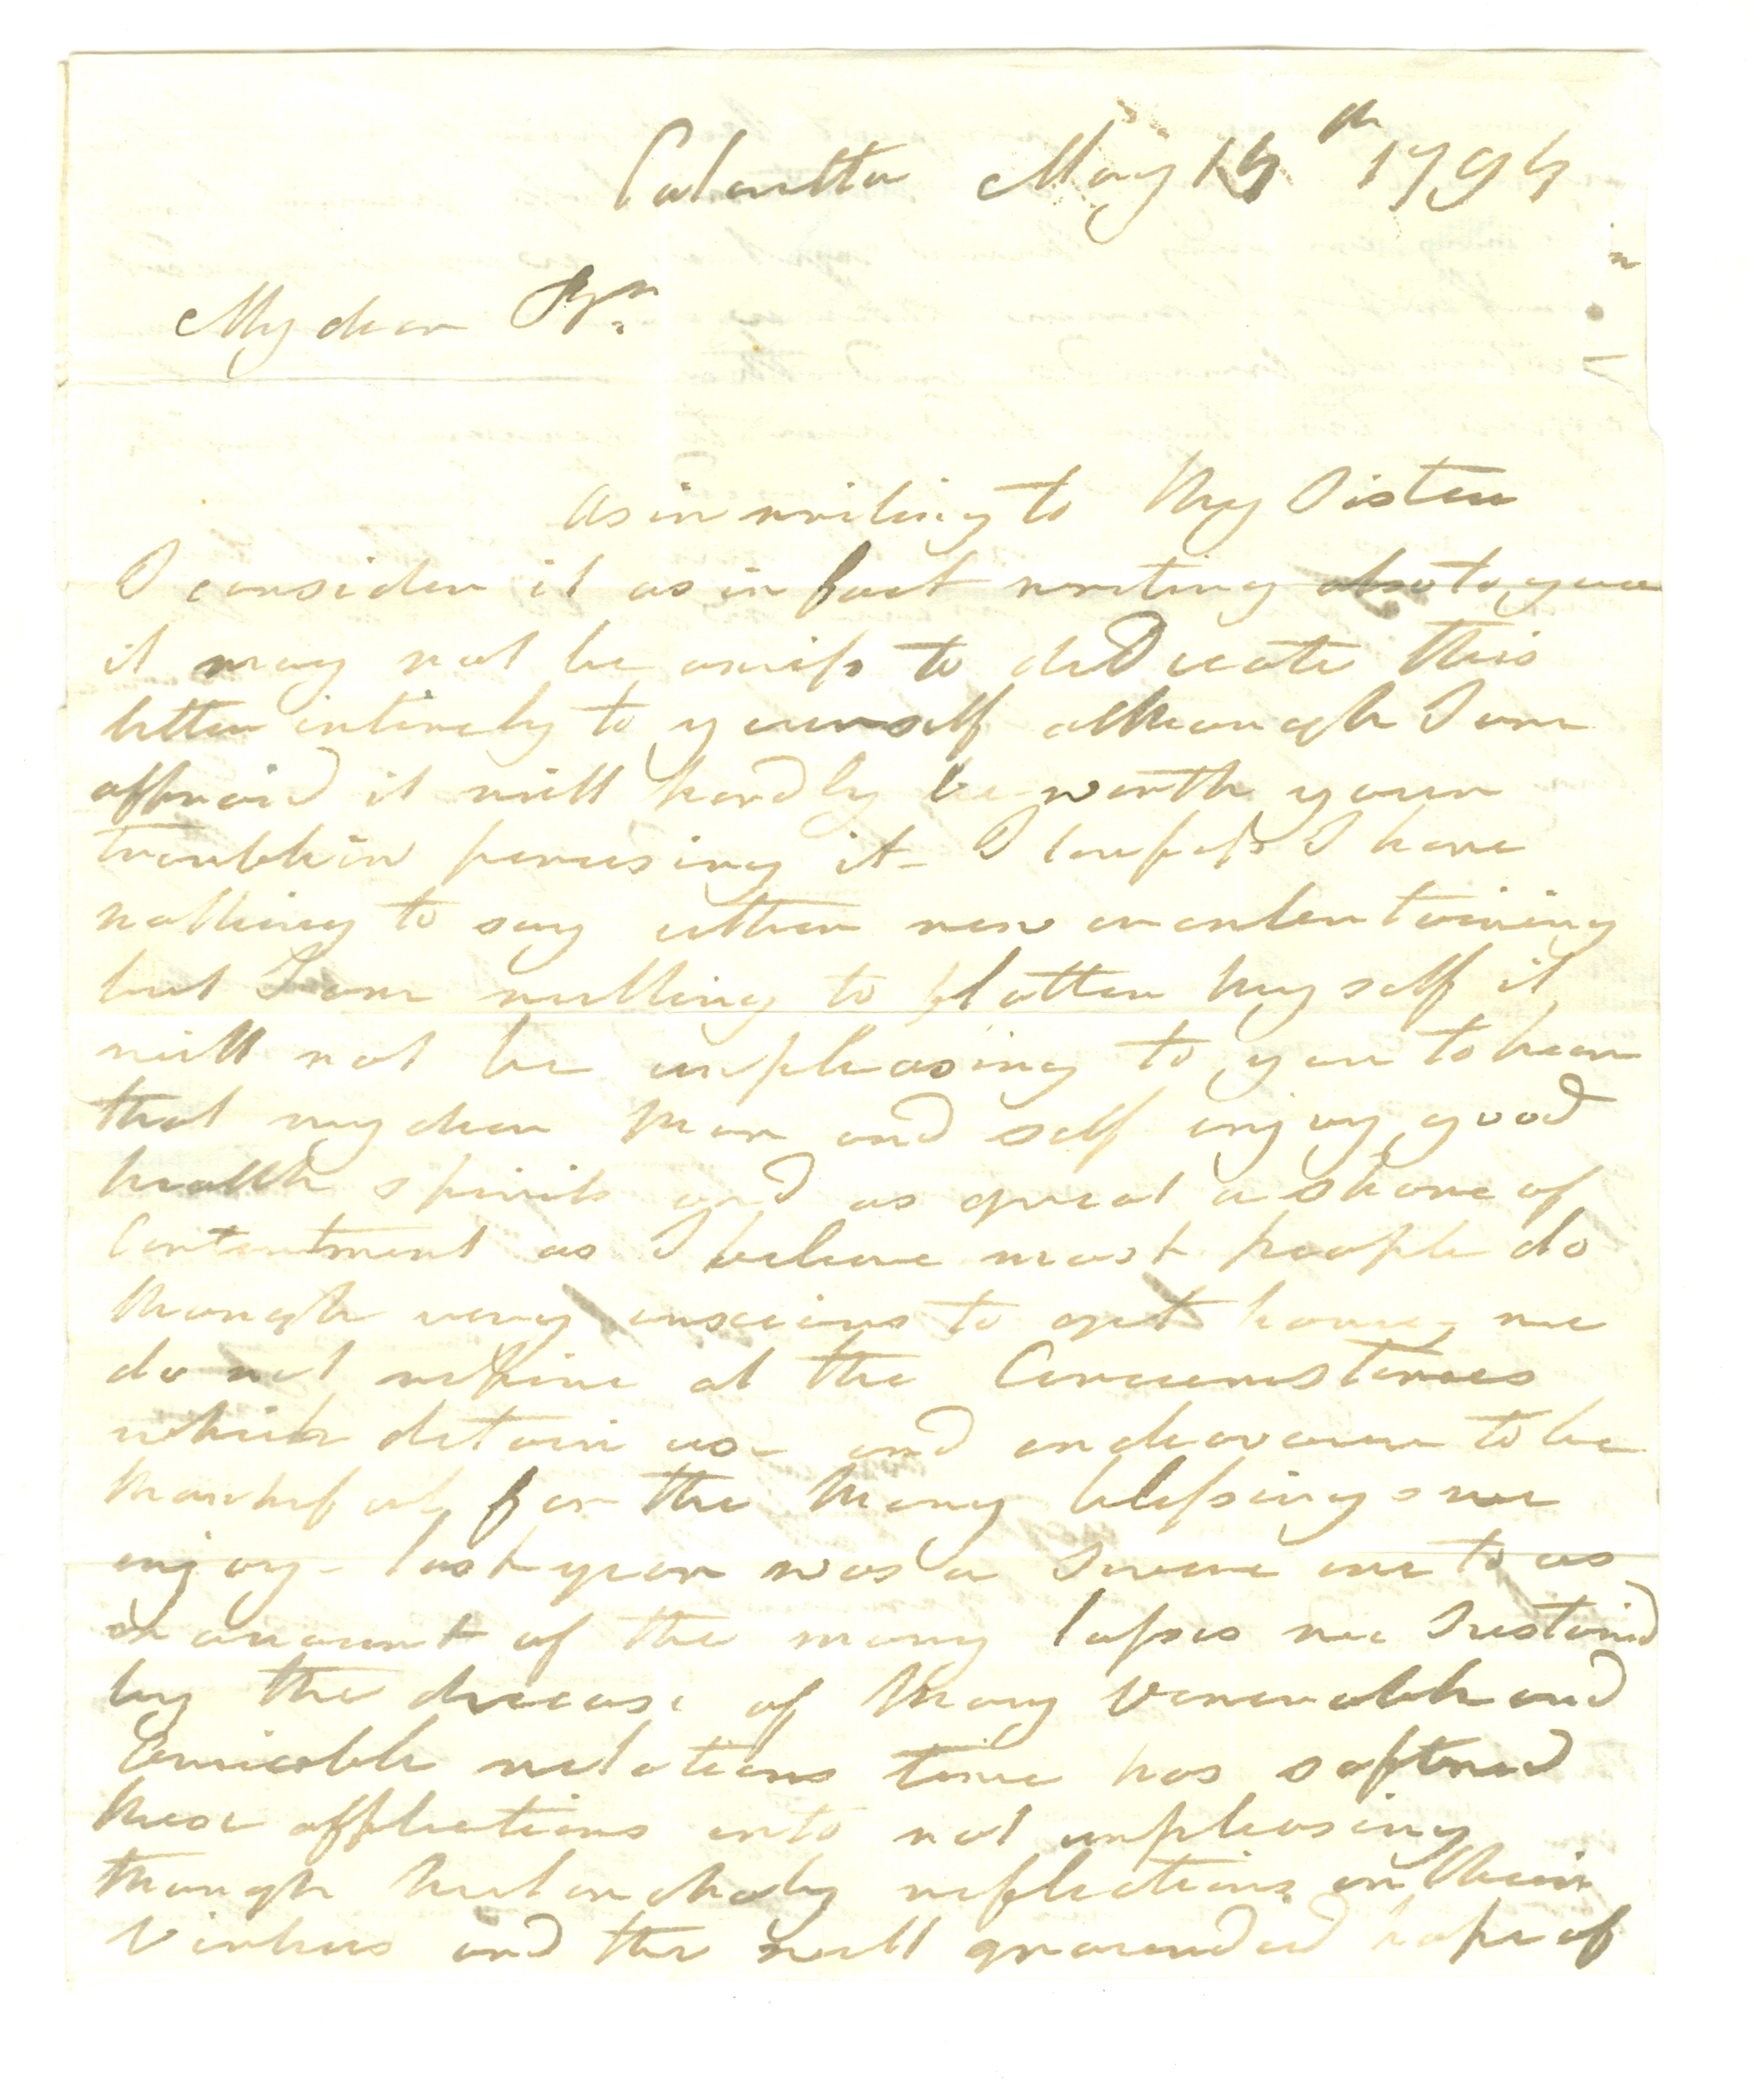 Calcutta May 15th 1794
My dear Sr.
As in writing to My Sister
I consider it as in fact writing also to you
it may not be amiss to dedicate this
letter intirely to yourself although I am
affraid it will hardly be worth your
trouble in perusing it - I confess I have
nothing to say either new or entertaining
but I am willing to flatter myself it
will not be unpleasing to you to hear
that my dear Man and self enjoy good
health spirits and as great a share of
Contentment as I believe most people do
though very anxious to get home, we
do not repine at the Circumstances
which detain us - and endeavour to be
thankful, for the Many blessings we
enjoy - last year was a Severe one to us
on account of the many losses we Sustained
by the decease of Many Venerable and
Amiable relations time has softned
these afflictions into not unpleasing
though Melancholy reflections on their
Virtues and the well grounded hope of